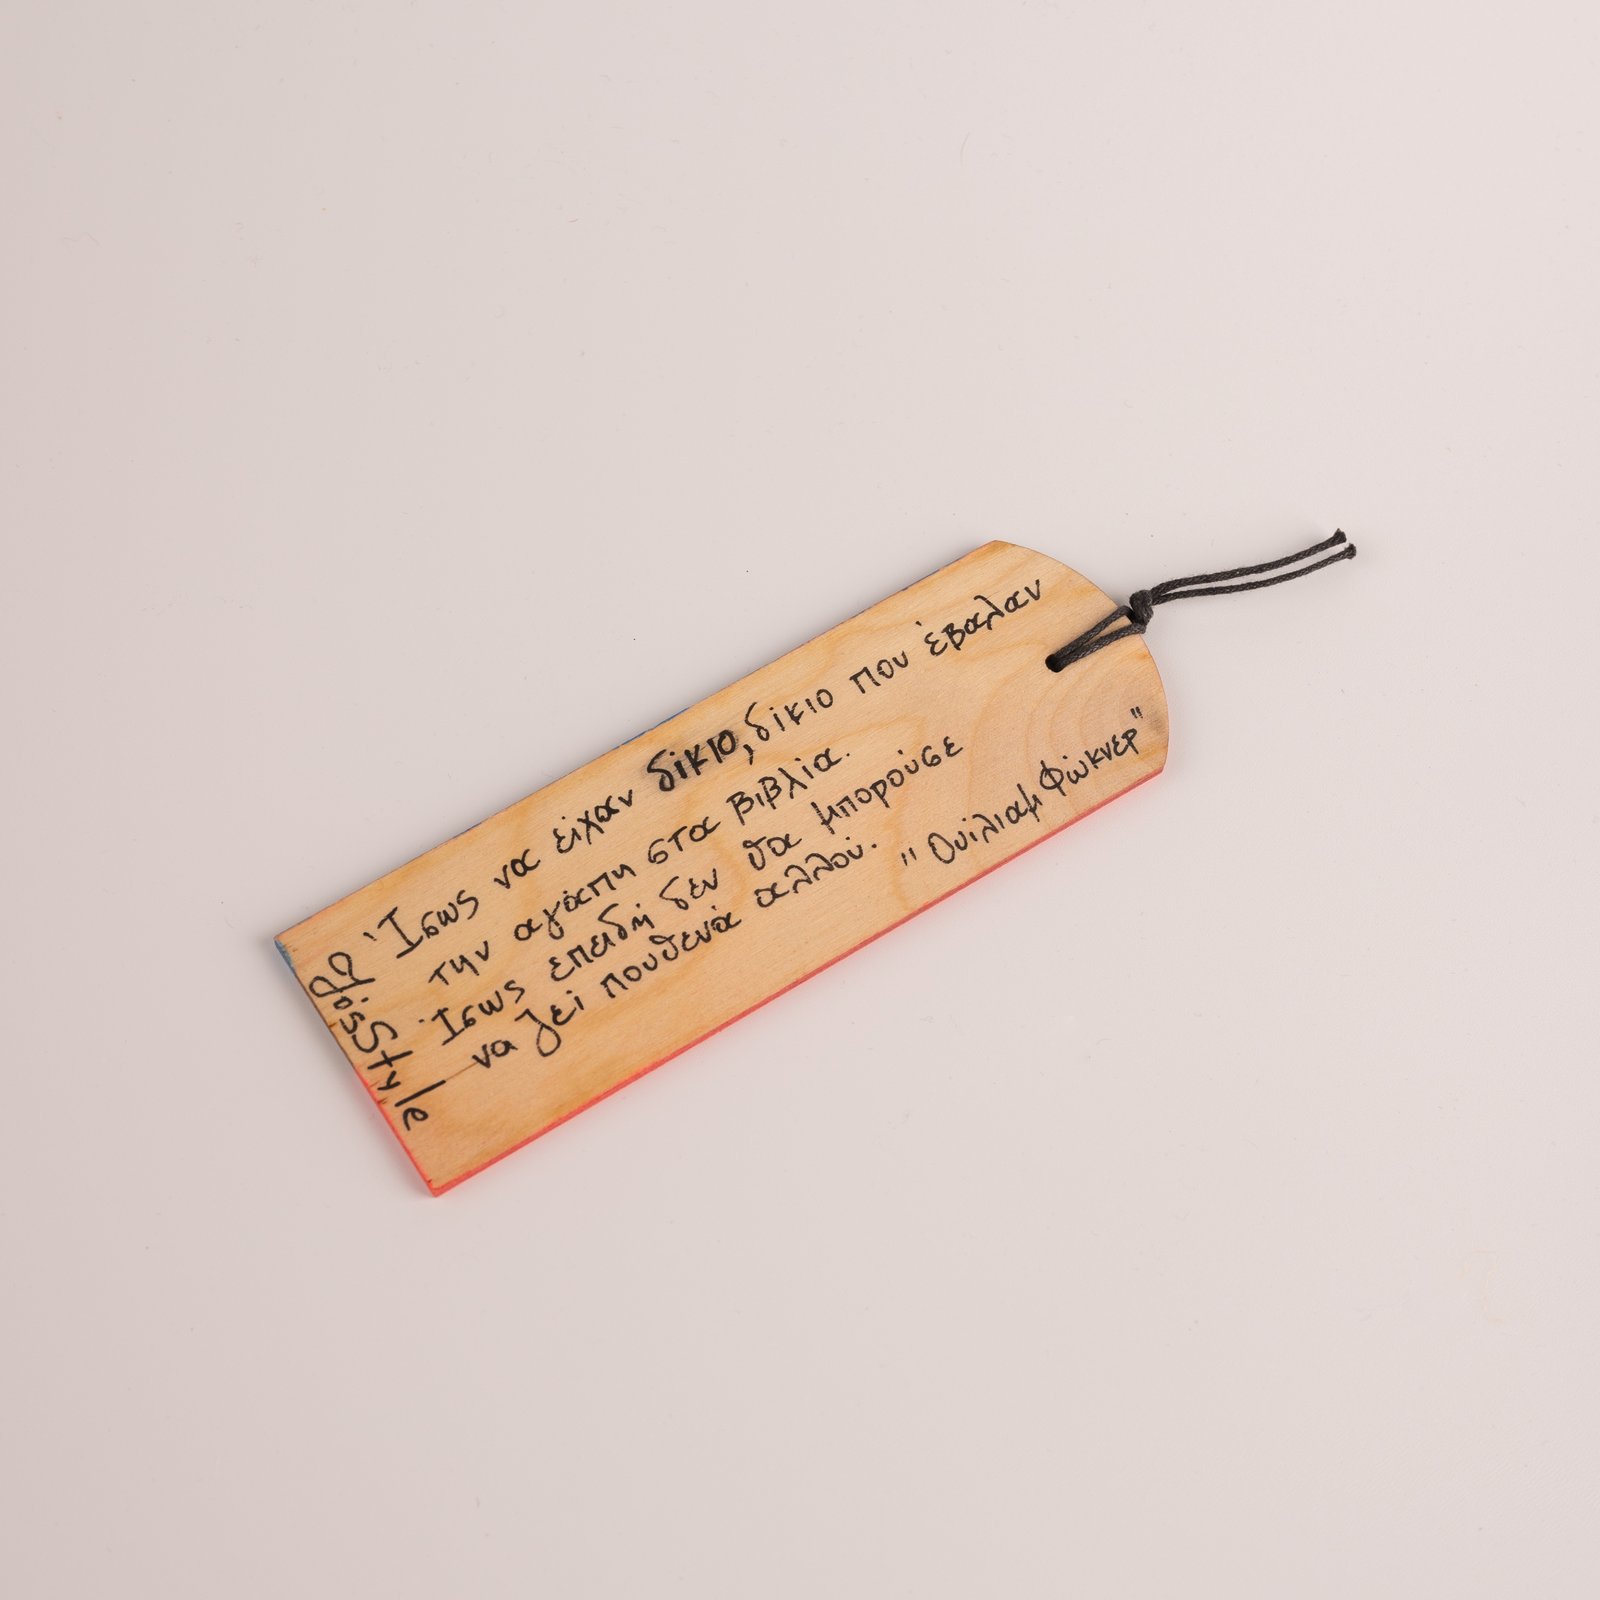 Ίσως να είχαν δίκιο, δίκιο που έβαλαν
την αγάπη στα βιβλία.
Ίσως επειδή δεν θα μπορούσε
να ζεί πουθενά αλλού.
"Ουίλιαμ Φώκνερ"
Style